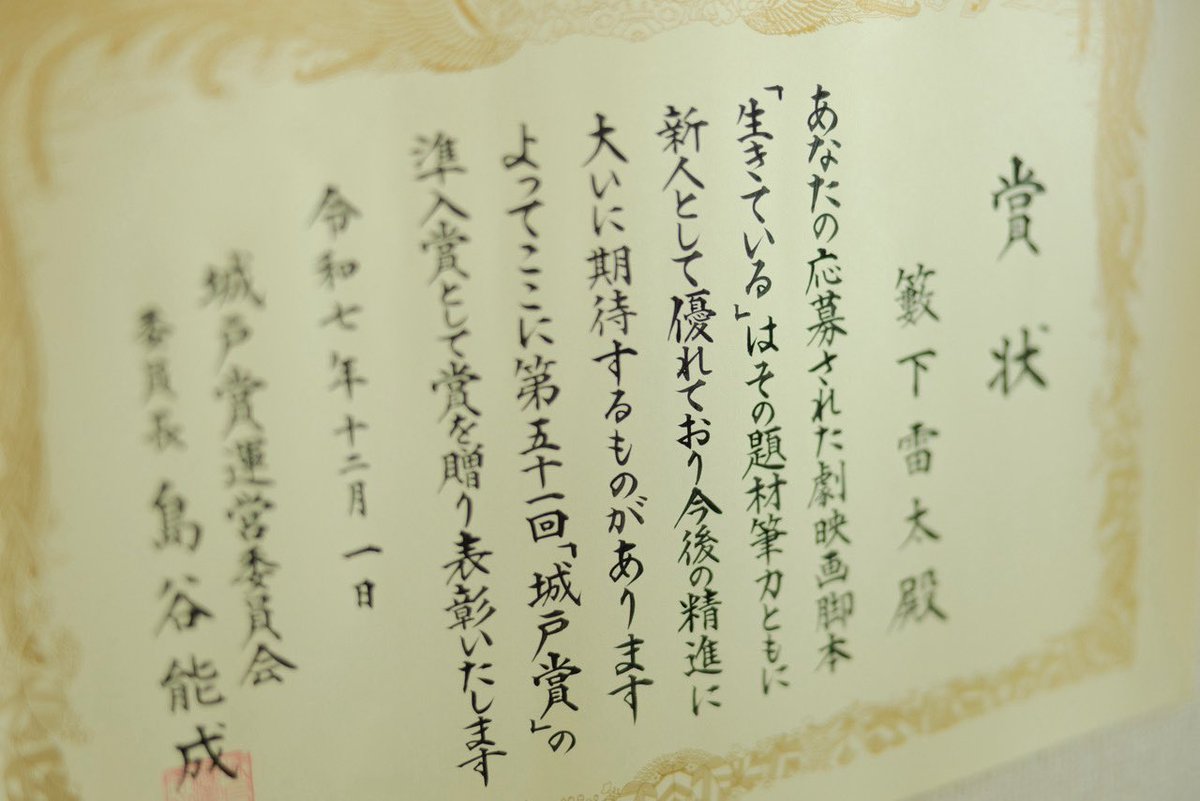 賞状
籔下雷太殿
あなたの応募された劇映画脚本
「生きている」はその題材筆力ともに
新人として優れており今後の精進に
大いに期待するものがあります
よってここに第五十一回「城戸賞」の
準入賞として賞を贈り表彰いたします
令和七年十二月一日
城戸賞運営委員会
委員長 島谷能成